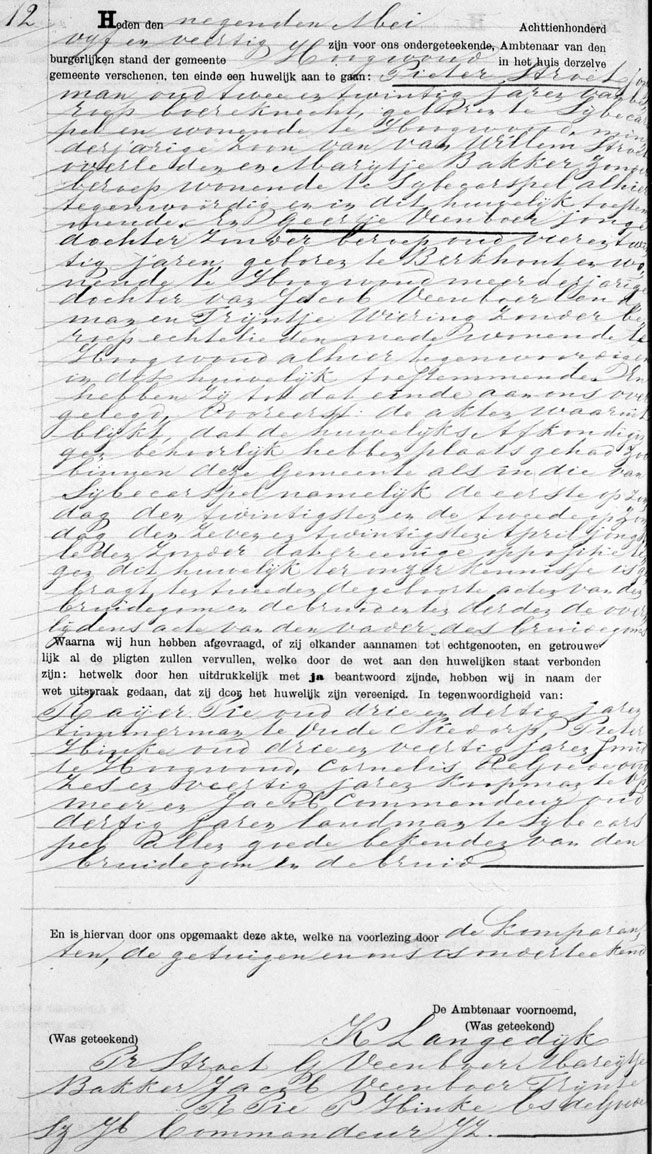 12
Heden den negenden Mei Achttienhonderd
vijf en veertig zijn voor ons ondergeteekende, Ambtenaar van den
burgerlijken stand der gemeente Hoogwoud in het huis derzelve
gemeente verschenen, ten einde een huwelijk aan te gaan: Pieter Stroet jon
man oud twee en twintig jaren van be
roep boereknecht, geboren te Sybecar
spel en wonende te Hoogwoud, min
derjarige zoon van van Willem Stroet
overleden en Marijtje Bakker zonder
beroep wonende te Sybecarspel alhier
tegenwoordig en in dit huwelijk toestem
mende. En Geertje Veenboer jonge
dochter zonder beroep oud vier en twin
tig jaren, geboren te Berkhout en wo
nende te Hoogwoud meerderjarige
dochter van Jacob Veenboer land
man en Trijntje Wiering zonder be
roep echtelieden mede wonende te
Hoogwoud alhier tegenwoordig en
in dit huwelijk toestemmende. En
hebben zij tot dat einde aan ons over
gelegd, Vooreerst: de akten waaruit
blijkt, dat de huwelijks Afkondigin
gen behoorlijk hebben plaats gehad zoo
binnen deze Gemeente als in die van
Sybecarspel namelijk de eerste op Zon
dag den twintigsten en de tweede op Zon
dag den zeven en twintigsten April jongst
leden zonder dat er eenige oppositie te
gen dit huwelijk ter onzer kennisse is ge
bragt, ten tweeden de geboorte acten van den
bruidegom en de bruid en ten derden de over
lijdens acte van den vader des bruidegoms
Waarna wij hun hebben afgevraagd, of zij elkander aannamen tot echtgenooten, en getrouwe
lijk al de pligten zullen vervullen, welke door de wet aan den huwelijken staat verbonden
zijn: hetwelk door hen uitdrukkelijk met ja beantwoord zijnde, hebben wij in naam der
wet uitspraak gedaan, dat zij door het huwelijk zijn vereenigd. In tegenwoordigheid van:
Reijer Pie oud drie en dertig jaren
timmerman te Oude Niedorp, Pieter
Hinke oud drie en veertig jaren smid
te Hoogwoud, Cornelis de Groeve oud
zes en veertig jaren koopman te Op
meer en Jacob Commandeur oud
dertig jaren landman te Sybecars
pel allen goede bekenden van den
bruidegom en de bruid
En is hiervan door ons opgemaakt deze akte, welke na voorlezing door de komparan
ten, de getuigen en ons is onderteekend
De Ambtenaar voornoemd,
(Was geteekend) (Was geteekend)
K Langedijk
Pr Stroet G Veenboer Marijtje
Bakker Jacob Veenboer Trijntje
R Pie P Hinke Cs de Groeve
Sz Jb Commandeur JZ.